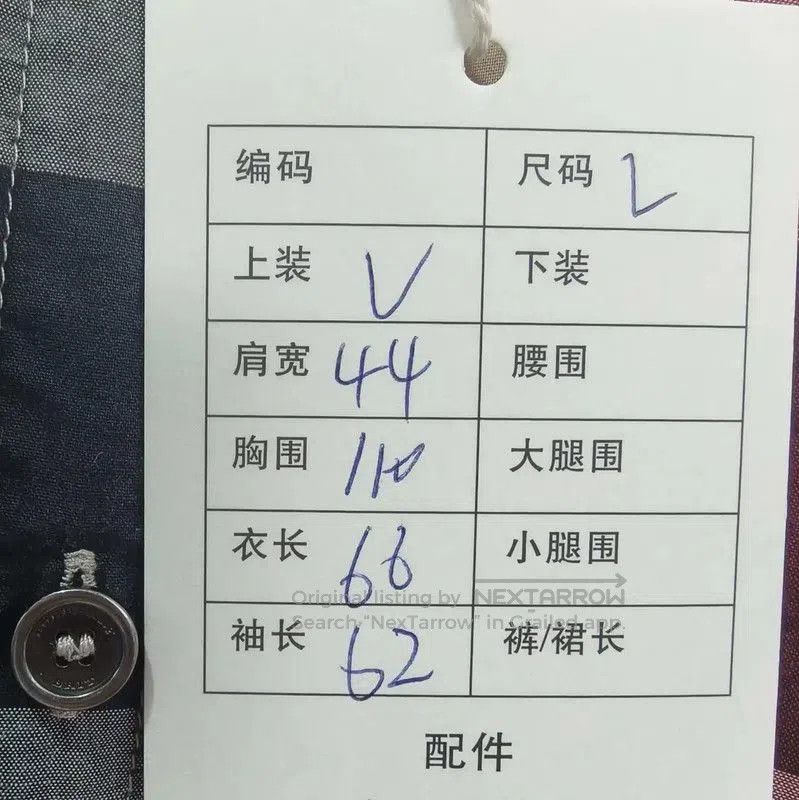 编码 尺码 L
上装 V 下装
肩宽 44 腰围
胸围 110 大腿围
衣长 66 小腿围
Original listing by NEXTARROW
Search "NexTarrow" in Grailed app.
袖长 62 裤/裙长
配件